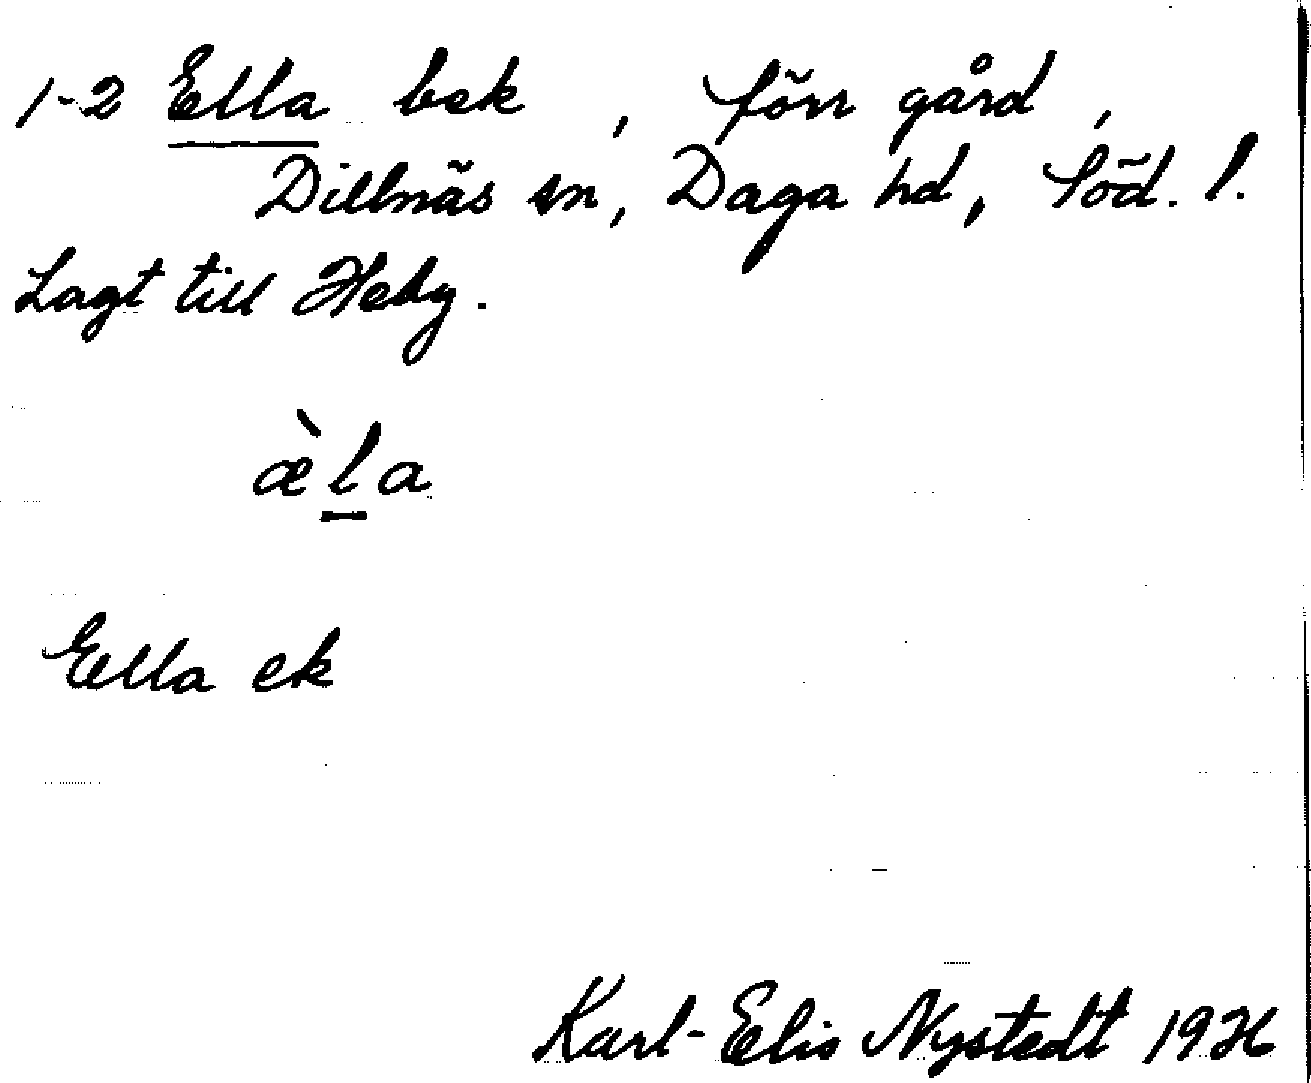 1-2 Ella bek, förr gård,
Dillnäs sn, Daga hd, Söd. l.
Lagt till Heby.
æ̀la
Ella ek
Karl-Elis Nystedt 1926